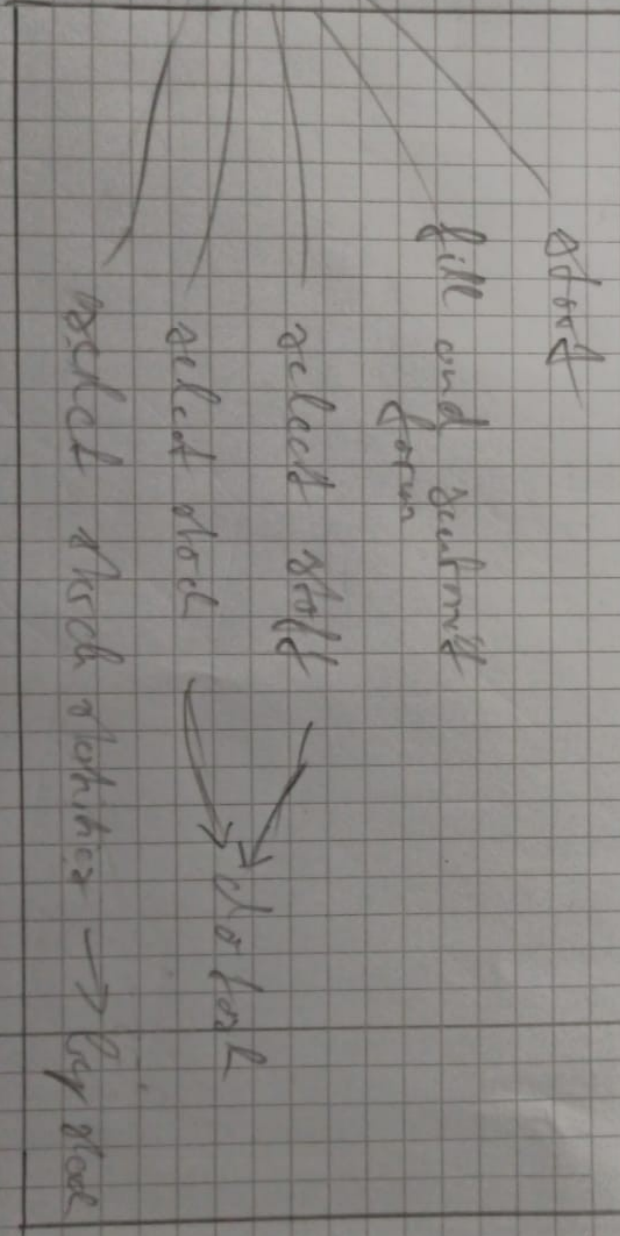 start
fill and submit
form
select staff
select stock
do task
select stock statistics → buy stock